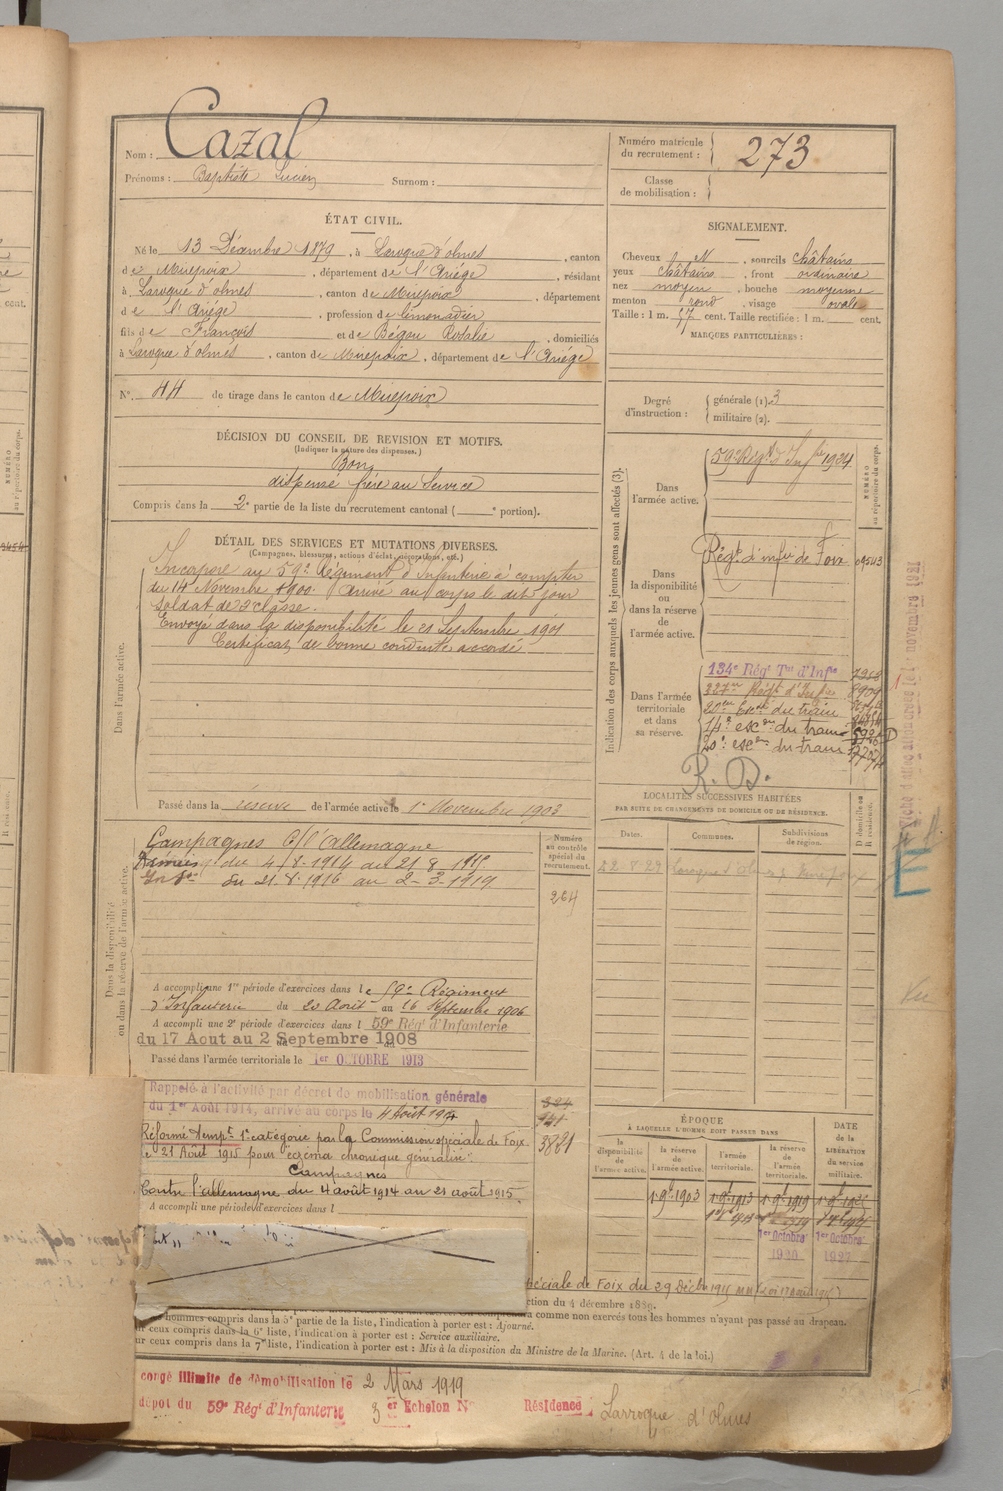 Nom : Cazal
Prénoms : Baptiste Lucien Surnom :
Numéro matricule du recrutement : 273
Classe de mobilisation :
ÉTAT CIVIL.
Né le 13 Décembre 1879, à Laroque d'olmes, canton
de Mirepoix, département de l'Ariége, résidant
à Laroque d'olmes, canton de Mirepoix, département
de l'Ariége, profession de limonadier
fils de François et de Bégou Rosalie, domiciliés
à Laroque d'olmes, canton de Mirepoix, département de l'Ariége
N° 44 de tirage dans le canton de Mirepoix
SIGNALEMENT.
Cheveux N, sourcils châtains
yeux châtains, front ordinaire
nez moyen, bouche moyenne
menton rond, visage ovale
Taille : 1 m. 57 cent. Taille rectifiée : 1 m. cent.
MARQUES PARTICULIÈRES :
Degré d'instruction : générale (1). 3
militaire (2).
DÉCISION DU CONSEIL DE REVISION ET MOTIFS.
(Indiquer la nature des dispenses.)
Bon
dispensé frère au Service
Compris dans la 2e partie de la liste du recrutement cantonal ( e portion).
DÉTAIL DES SERVICES ET MUTATIONS DIVERSES.
(Campagnes, blessures, actions d'éclat, décorations, etc.)
Dans l'armée active.
Incorporé au 59e Régiment d'Infanterie à compter
du 14 Novembre 1900. Arrivé au corps le dit jour
soldat de 2e classe.
Envoyé dans la disponibilité le 21 Septembre 1901
Certificat de bonne conduite accordé
Passé dans la réserve de l'armée active le 1er Novembre 1903
Indication des corps auxquels les jeunes gens sont affectés (3).
NUMÉRO au répertoire du corps.
Dans l'armée active.
59e Régt d'Infie 1924
Dans la disponibilité ou dans la réserve de l'armée active.
Régt d'infie de Foix 09543
Dans l'armée territoriale et dans sa réserve.
134e Régt Tal d'Infie
Régt d'Infie 8909
20e Escon du train
14e escon du train
20e escon du train
R. D.
LOCALITÉS SUCCESSIVES HABITÉES
PAR SUITE DE CHANGEMENTS DE DOMICILE OU DE RÉSIDENCE.
Dates. Communes. Subdivisions de région. D domicile ou R résidence.
22.8.29 Laroque d'olmes
Dans la disponibilité ou dans la réserve de l'armée active.
Numéro au contrôle spécial du recrutement.
264
Campagnes C/ l'allemagne
du 4/8-1914 au 21 8 1915
du 21-8-1916 au 2-3-1919
A accompli une 1re période d'exercices dans le 59e Régiment
d'Infanterie du 20 Août au 16 Septembre 1906
A accompli une 2e période d'exercices dans l 59e Régt d'Infanterie
du 17 Aout au 2 Septembre 1908
Passé dans l'armée territoriale le 1er OCTOBRE 1913
Rappelé à l'activité par décret de mobilisation générale
du 1er Août 1914, arrivé au corps le 4 Août 1914
Réformé tempre 1e catégorie par la Commission spéciale de Foix
le 21 Août 1915 pour eczéma chronique généralisé.
Campagnes
Contre l'allemagne du 4 août 1914 au 21 août 1915.
A accompli une période d'exercices dans l
324
141
3821
ÉPOQUE
À LAQUELLE L'HOMME DOIT PASSER DANS
la disponibilité de l'armée active.
la réserve de l'armée active.
l'armée territoriale.
la réserve de l'armée territoriale.
DATE de la LIBÉRATION du service militaire.
1 9bre 1903 1 9bre 1913 1 9bre 1919 1 9bre 1925
1er Octobre 1920
1er Octobre 1927
spéciale de Foix du 29 Décbre 1915
ction du 4 décembre 1889.
hommes compris dans la 5e partie de la liste, l'indication à porter est : Ajourné.
comme non exercés tous les hommes n'ayant pas passé au drapeau.
ur ceux compris dans la 6e liste, l'indication à porter est : Service auxiliaire.
ur ceux compris dans la 7e liste, l'indication à porter est : Mis à la disposition du Ministre de la Marine. (Art. 4 de la loi.)
congé illimité de démobilisation le 2 Mars 1919
dépot du 59e Régt d'Infanterie 3er Echelon N° Résidence : Larroque d'Olmes